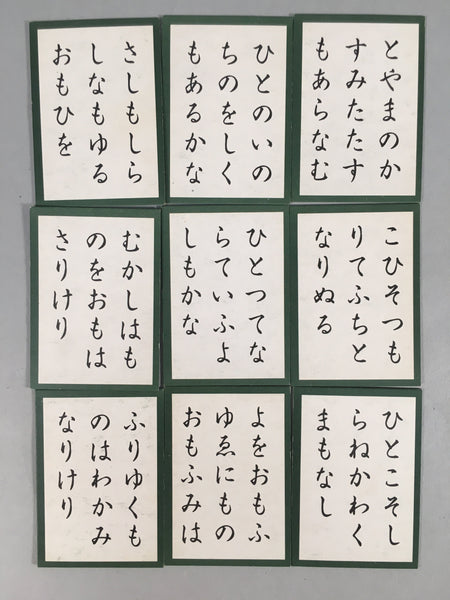 とやまのか
すみたたす
もあらなむ
ひとのいの
ちのをしく
もあるかな
さしもしら
しなもゆる
おもひを
こひそつも
りてふちと
なりぬる
ひとつてな
らていふよ
しもかな
むかしはも
のをおもは
さりけり
ひとこそし
らねかわく
まもなし
よをおもふ
ゆゑにもの
おもふみは
ふりゆくも
のはわかみ
なりけり